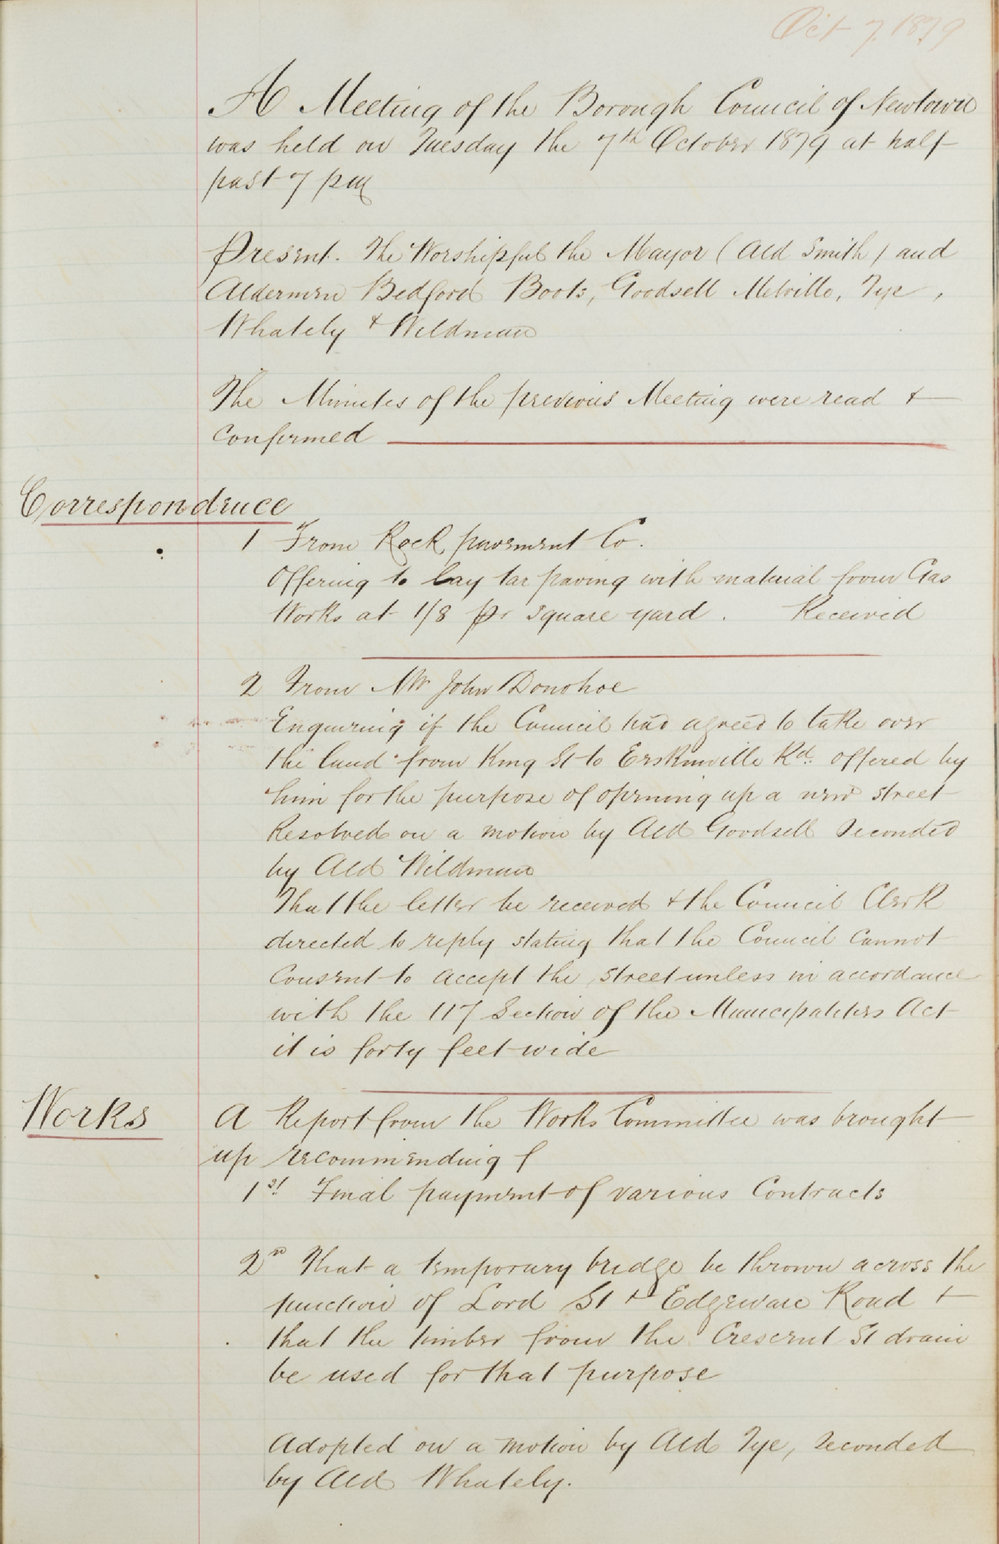 Oct 7. 1879
A Meeting of the Borough Council of Newtown
was held on Tuesday the 7th October 1879 at half
past 7 pm
Present. The Worshipful the Mayor (Ald Smith) and
Aldermen Bedford Boots, Goodsell Melville, Tye,
Whately & Wildman
The Minutes of the previous Meeting were read &
confirmed
Correspondence
1 From Rock pavement Co.
Offering to lay tar paving with material from Gas
Works at 1/8 pr square yard. Received
2 From Mr John Donohoe
Enquiring if the Council had agreed to take over
the land from King St to Erskinville Rd. offered by
him for the purpose of opening up a new street
Resolved on a motion by Ald Goodsell seconded
by Ald Wildman
That the letter be received & the Council Clerk
directed to reply stating that the Council cannot
consent to accept the street unless in accordance
with the 117 Section of the Municipalities Act
it is forty feet wide
Works
A Report from the Works Committee was brought
up recommending
1st Final payment of various Contracts
2nd That a temporary bridge be thrown across the
junction of Lord St & Edgeware Road &
that the timber from the Crescent St drain
be used for that purpose
Adopted on a motion by Ald Tye, seconded
by Ald Whately.